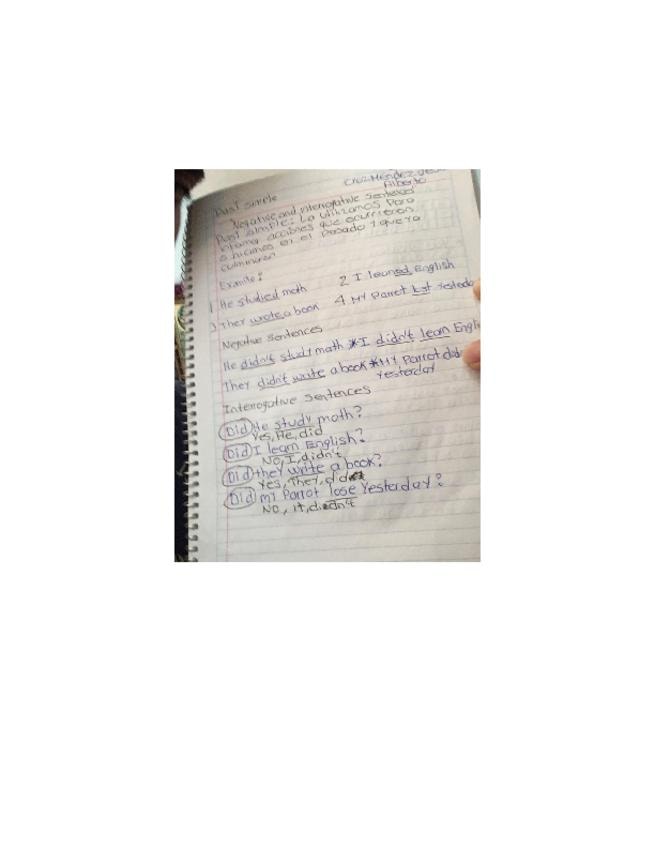 Cruz Méndez
Alberto
Past simple
Negative and interrogative Sentences
Past simple: La utilizamos Para
acciones que ocurrieron
o hicimos en el Pasado y que ya
culminaron
Example:
1 He studied math 2 I learned English
3 They wrote a book 4 My Parrot lost Yesterda
Negative Sentences
He didn't study math *I didn't learn Engli
They didn't write a book *My Parrot did
Yesterday
Interrogative Sentences
Did He study math?
Yes, He, did
Did I learn English?
No, I, didn't
Did they write a book?
Yes, They, did
Did my Parrot lose Yesterday?
No, it, didn't